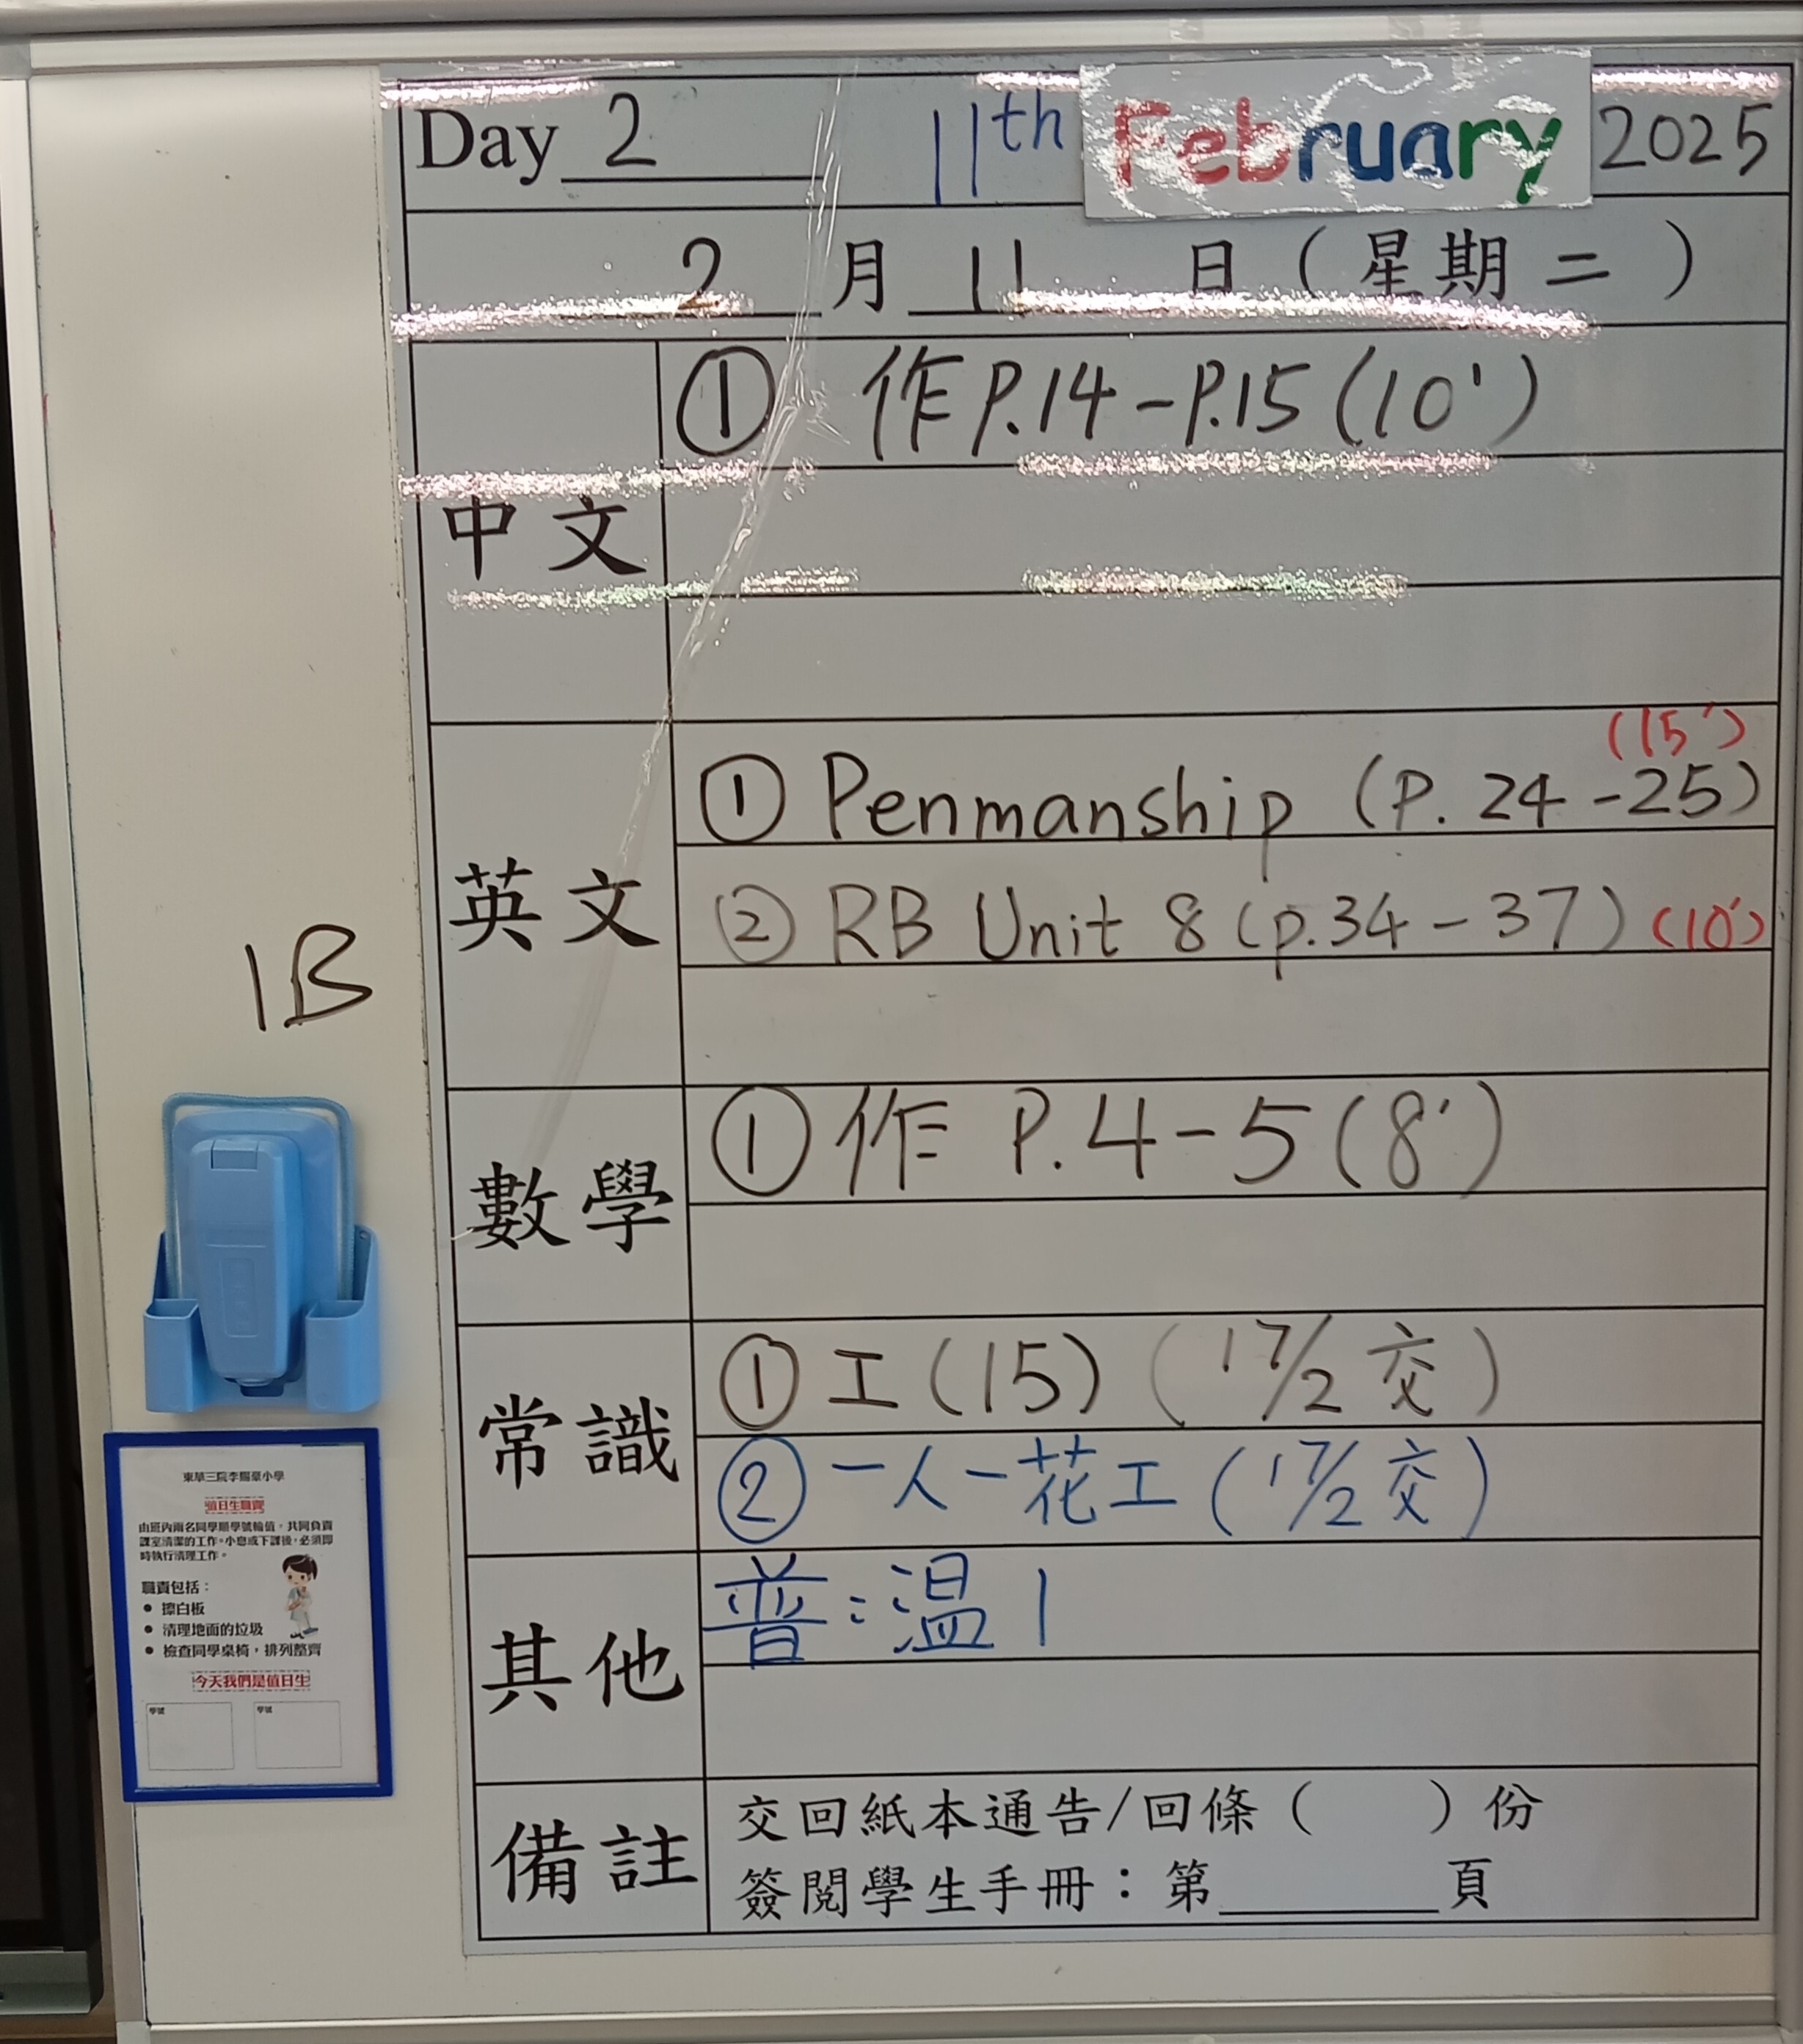 Day 2 11th February 2025
2 月 11 日 ( 星期 二 )
中文
① 作 P.14 - P.15 (10')
英文
(15')
① Penmanship (P. 24 - 25)
② RB Unit 8 (p.34 - 37) (10')
1B
數學
① 作 P.4 - 5 (8')
常識
① 工 (15) (17/2 交)
② 一人一花工 (17/2 交)
其他
普：溫 1
備註
交回紙本通告/回條 ( ) 份
簽閱學生手冊：第______頁
東華三院李賜豪小學
值日生職責
由班內兩名同學順學號輪值，共同負責
課室清潔的工作。小息或下課後，必須即
時執行清理工作。
職責包括：
• 擦白板
• 清理地面的垃圾
• 檢查同學桌椅，排列整齊
今天我們是值日生
學號 學號